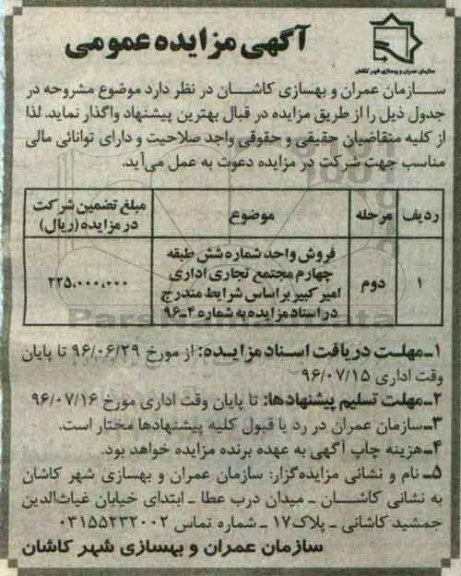 آگهی مزایده عمومی
سازمان عمران و بهسازی شهر کاشان
سازمان عمران و بهسازی کاشان در نظر دارد موضوع مشروحه در
جدول ذیل را از طریق مزایده در قبال بهترین پیشنهاد واگذار نماید. لذا
از کلیه متقاضیان حقیقی و حقوقی واجد صلاحیت و دارای توانائی مالی
مناسب جهت شرکت در مزایده دعوت به عمل می‌آید.
ردیف مرحله موضوع مبلغ تضمین شرکت در مزایده (ریال)
۱ دوم فروش واحد شماره شش طبقه
چهارم مجتمع تجاری اداری
امیر کبیر بر اساس شرایط مندرج
در اسناد مزایده به شماره ۴-۹۶
۲۲۵،۰۰۰،۰۰۰
۱ـ مهلت دریافت اسناد مزایده: از مورخ ۹۶/۰۶/۲۹ تا پایان
وقت اداری ۹۶/۰۷/۱۵
۲ـ مهلت تسلیم پیشنهادها: تا پایان وقت اداری مورخ ۹۶/۰۷/۱۶
۳ـ سازمان عمران در رد یا قبول کلیه پیشنهادها مختار است.
۴ـ هزینه چاپ آگهی به عهده برنده مزایده خواهد بود.
۵ـ نام و نشانی مزایده‌گزار: سازمان عمران و بهسازی شهر کاشان
به نشانی کاشان ـ میدان درب عطا ـ ابتدای خیابان غیاث‌الدین
جمشید کاشانی ـ پلاک ۱۷ ـ شماره تماس ۰۳۱۵۵۲۳۲۰۰۲
سازمان عمران و بهسازی شهر کاشان